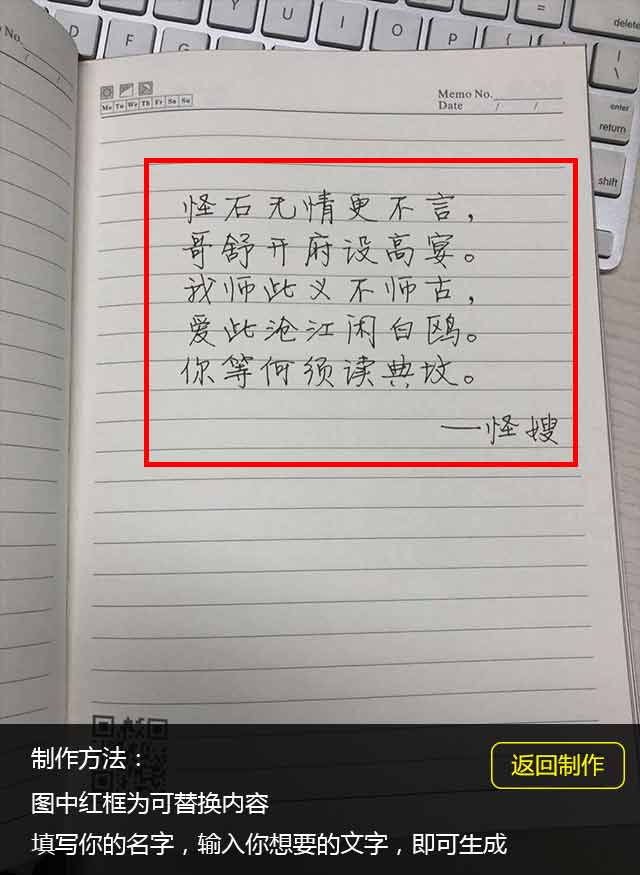 No.
/ /
Y U I O P
D F G
=
delete
enter
return
shift
Mo Tu We Th Fr Sa Su
Memo No.
Date / /
怪石无情更不言，
哥舒开府设高宴。
我师此义不师古，
爱此沧江闲白鸥。
你等何须读典坟。
—怪嫂
制作方法：
返回制作
图中红框为可替换内容
填写你的名字，输入你想要的文字，即可生成